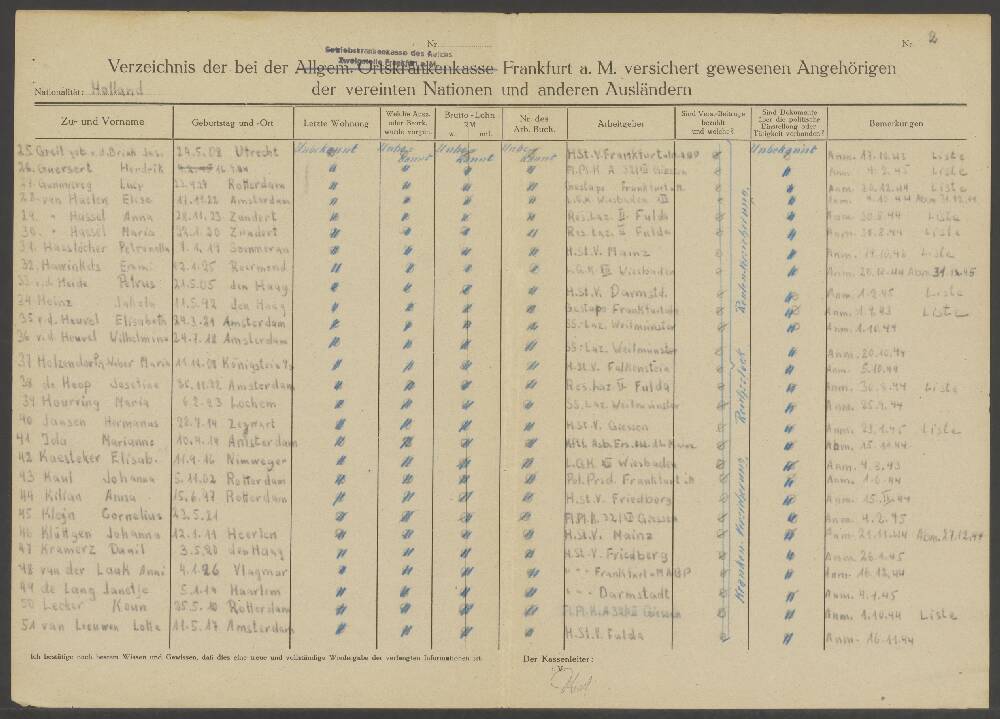 Nr.
Nr. 2
Betriebskrankenkasse des Reichs
Zweigstelle Frankfurt a.M.
Verzeichnis der bei der Allgem. Ortskrankenkasse Frankfurt a. M. versichert gewesenen Angehörigen
Nationalität: Holland
der vereinten Nationen und anderen Ausländern
Zu- und Vorname Geburtstag und -Ort Letzte Wohnung Welche Ausz. oder Beurk. wurde vorgen. Brutto-Lohn RM w. mtl. Nr. des Arb. Buch. Arbeitgeber Sind Vers.-Beiträge bezahlt und welche? Sind Dokumente über die politische Einstellung oder Tätigkeit vorhanden? Bemerkungen
25. Greil geb. v.d. Brink Jos. 29.5.08 Utrecht Unbekannt Unbekannt Unbekannt Unbekannt H.St.V. Frankfurt Unbekannt Anm. 17.10.43 Liste
26. Guersert Hendrik " " " " Fl.Pl.K. A 32/XII Giessen " Anm. 4.2.45 Liste
27. Lucy 23.9.24 Rotterdam " " " " Gestapo Frankfurt a.M. " Anm. 20.12.44 Liste
28. van Haslen Elise 17.11.22 Amsterdam " " " " L.G.K. Wiesbaden XII " Anm. 4.10.44 Abm. 31.12.44
29. " Hassel Anna 28.11.23 Zundert " " " " Res. Laz. II Fulda " Anm. 30.8.44 Liste
30. " Hassel Maria 27.1.20 Zundert " " " " Res. Laz. II Fulda " Anm. 30.8.44 Liste
31. Hasslöcher Petronella 8.1.19 " " " " H.St.V. Mainz " Anm. 19.10.43 Liste
32. Hawinkels Emmi 12.1.25 Roermond " " " " L.G.K. XII Wiesbaden " Anm. 20.12.44 Abm. 31.12.45
33. v.d. Heide Petrus 21.5.05 den Haag " " " " H.St.V. Darmstd. " Anm. 1.2.45 Liste
34. Heinz 11.5.92 den Haag " " " " Gestapo Frankfurt a.M. " Anm. 1.9.43 Liste
35. v.d. Heuvel Elisabeth 24.3.21 Amsterdam " " " " SS.-Laz. Weilmünster " Anm. 1.10.44
36. v.d. Heuvel Wilhelmina 24.7.18 Amsterdam " " " " SS.-Laz. Weilmünster " Anm. 20.10.44
37. Holzendorf-Weber Maria 11.11.08 Königstein Ts. " " " " H.St.V. Falkenstein " Anm. 5.10.44
38. de Hoop Josetine 30.10.22 Amsterdam " " " " Res. Laz. II Fulda " Anm. 30.8.44 Liste
39. Hourving Maria 6.2.23 Lochem " " " " SS. Laz. Weilmünster " Anm. 25.9.44
40. Jansen Hermanus 28.9.14 " " " " H.St.V. Giessen " Anm. 23.1.45 Liste
41. Jola Marianne 10.4.14 Amsterdam " " " " " Abm. 15.10.44
42. Kaesteker Elisab. 11.4.16 Nimweger " " " " L.G.K. XII Wiesbaden " Anm. 4.3.43
43. Kaul Johanna 5.11.02 Rotterdam " " " " Pol. Präd. Frankfurt a.M. " Anm. 1.6.44
44. Kilian Anna 15.6.97 Rotterdam " " " " H.St.V. Friedberg " Anm. 15. 44
45. Klein Cornelius 23.5.21 " " " " Fl.Pl.K. 32/XII Giessen " Anm. 4.2.45
46. Klüttgen Johanna 12.1.11 Heerlen " " " " H.St.V. Mainz " Anm. 21.11.44 Abm. 27.12.44
47. Kramerz Danil 3.5.20 den Haag " " " " H.St.V. Friedberg " Anm. 26.1.45
48. van der Laak Anni 4.1.26 Vlagmar " " " " " " " Frankfurt-MABP " Anm. 16.12.44
49. de Lang Jansetje 5.1.19 Haarlem " " " " " " Darmstadt " Anm. 4.1.45
50. Lecker Koun 25.5.10 Rotterdam " " " " Fl.Pl.K. A 32/XII Giessen " Anm. 1.10.44 Liste
51. van Leeuwen Lotte 11.5.17 Amsterdam " " " " H.St.V. Fulda " Anm. 16.11.44
Kranken-Versicherung, Rentenversicherung
Ich bestätige nach bestem Wissen und Gewissen, daß dies eine treue und vollständige Wiedergabe der verlangten Informationen ist.
Der Kassenleiter: